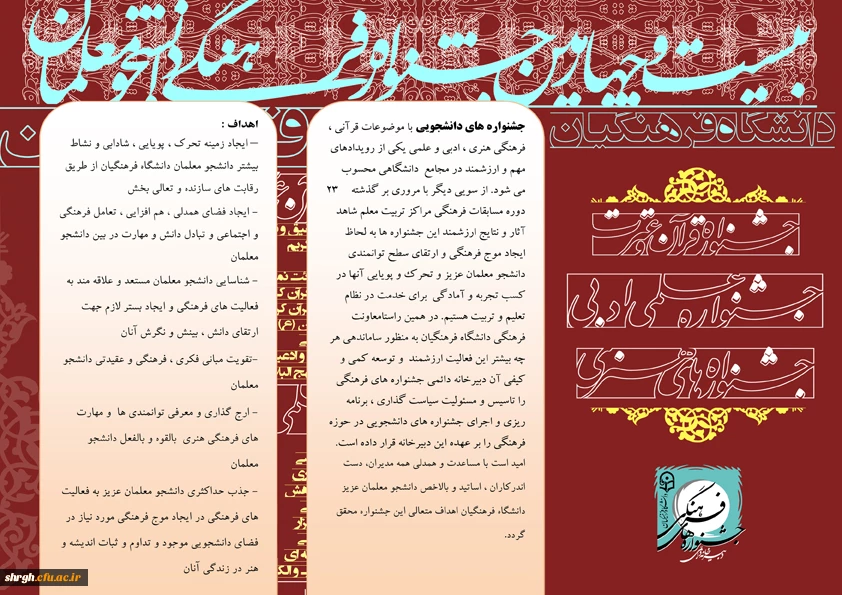 بیست و چهارمین جشنواره فرهنگی دانشجو معلمان
دانشگاه فرهنگیان
جشنواره قرآن و عترت
جشنواره علمی ادبی
جشنواره های هنری
جشنواره های فرهنگی
جشنواره های دانشجویی با موضوعات قرآنی ،
فرهنگی هنری ، ادبی و علمی یکی از رویدادهای
مهم و ارزشمند در مجامع دانشگاهی محسوب
می شود. از سویی دیگر با مروری بر گذشته ۲۳
دوره مسابقات فرهنگی مراکز تربیت معلم شاهد
آثار و نتایج ارزشمند این جشنواره ها به لحاظ
ایجاد موج فرهنگی و ارتقای سطح توانمندی
دانشجو معلمان عزیز و تحرک و پویایی آنها در
کسب تجربه و آمادگی برای خدمت در نظام
تعلیم و تربیت هستیم. در همین راستامعاونت
فرهنگی دانشگاه فرهنگیان به منظور ساماندهی هر
چه بیشتر این فعالیت ارزشمند و توسعه کمی و
کیفی آن دبیرخانه دائمی جشنواره های فرهنگی
را تاسیس و مسئولیت سیاست گذاری ، برنامه
ریزی و اجرای جشنواره های دانشجویی در حوزه
فرهنگی را بر عهده این دبیرخانه قرار داده است.
امید است با مساعدت و همدلی همه مدیران، دست
اندرکاران ، اساتید و بالاخص دانشجو معلمان عزیز
دانشگاه فرهنگیان اهداف متعالی این جشنواره محقق
گردد.
اهداف :
– ایجاد زمینه تحرک ، پویایی ، شادابی و نشاط
بیشتر دانشجو معلمان دانشگاه فرهنگیان از طریق
رقابت های سازنده و تعالی بخش
- ایجاد فضای همدلی ، هم افزایی ، تعامل فرهنگی
و اجتماعی و تبادل دانش و مهارت در بین دانشجو
معلمان
- شناسایی دانشجو معلمان مستعد و علاقه مند به
فعالیت های فرهنگی و ایجاد بستر لازم جهت
ارتقای دانش ، بینش و نگرش آنان
-تقویت مبانی فکری ، فرهنگی و عقیدتی دانشجو
معلمان
- ارج گذاری و معرفی توانمندی ها و مهارت
های فرهنگی هنری بالقوه و بالفعل دانشجو
معلمان
- جذب حداکثری دانشجو معلمان عزیز به فعالیت
های فرهنگی در ایجاد موج فرهنگی مورد نیاز در
فضای دانشجویی موجود و تداوم و ثبات اندیشه و
هنر در زندگی آنان
shrgh.cfu.ac.ir